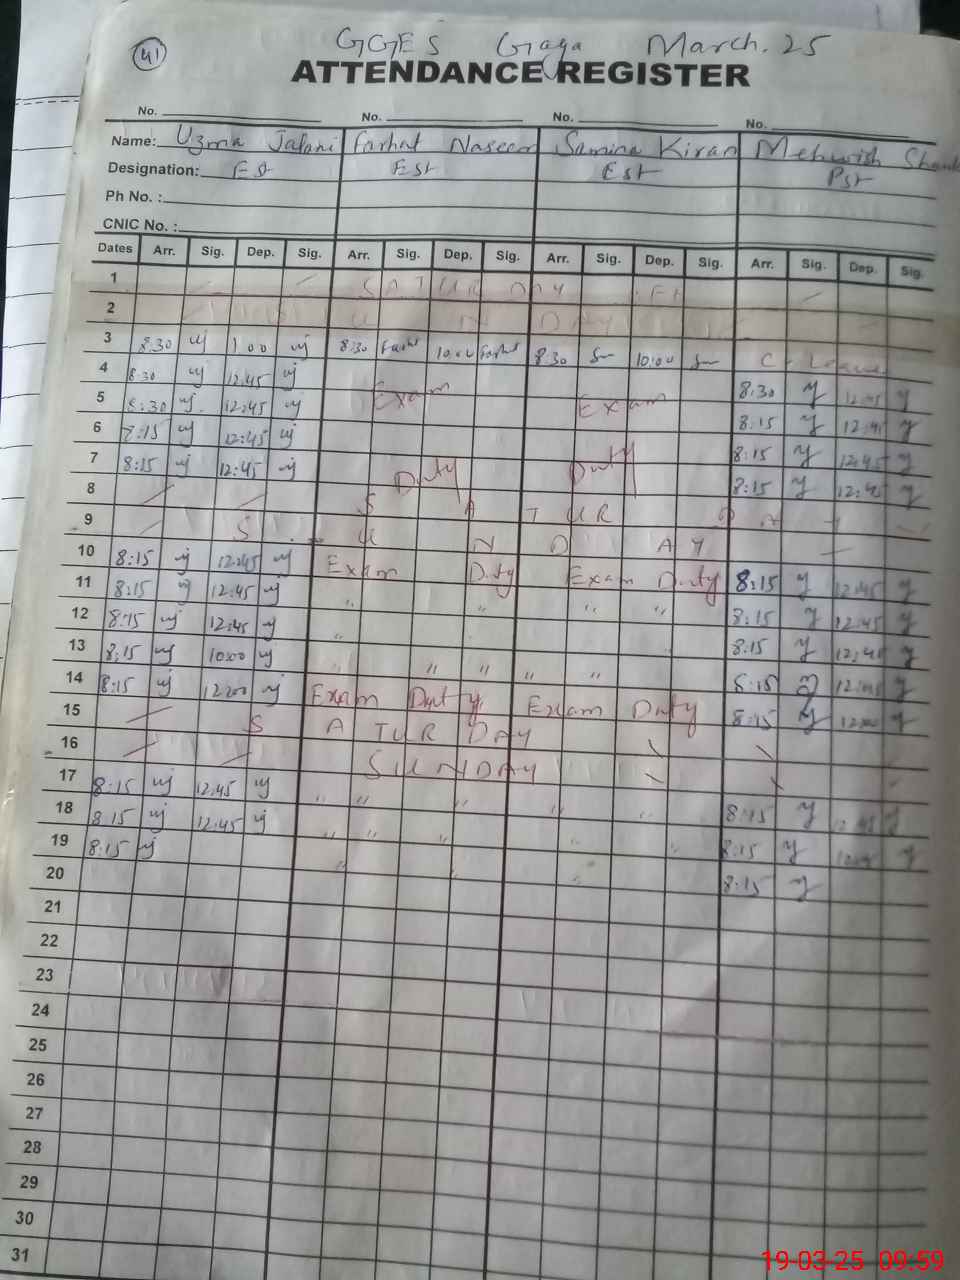 41
GGES Gaga March. 25
ATTENDANCE REGISTER
No. No. No. No.
Name: Uzma Jalani Farhat Naseem Samina Kiran Mehwish
Designation: Est Est Est Pst
Ph No. :
CNIC No. :
Dates Arr. Sig. Dep. Sig. Arr. Sig. Dep. Sig. Arr. Sig. Dep. Sig. Arr. Sig. Dep. Sig.
1 SATURDAY
2 U N DAY
3 8:30 uj 1:00 uj 8:30 Farhat 10:00 Farhat 8:30 10:00 C- Leave
4 8:30 uj 12:45 uj 8:30
5 8:30 uj 12:45 uj Exam Exam 8:15 12:45
6 8:15 uj 12:45 uj 8:15 12:45
7 8:15 uj 12:45 uj Duty Duty 8:15 12:45
8 S A T UR D A Y
9 S U N D A Y
10 8:15 uj 12:45 uj Exam Duty Exam Duty 8:15 12:45
11 8:15 uj 12:45 uj " " " " 8:15 12:45
12 8:15 uj 12:45 uj " 8:15 12:45
13 8:15 uj 10:00 uj " " " " " 8:15 12:45
14 8:15 uj 12:00 uj Exam Duty Exam Duty 8:15 12:00
15 S A TUR DAY
16 SUNDAY
17 8:15 uj 12:45 uj " " " " " 8:15 12:45
18 8:15 uj 12:45 uj " " " " " 8:15
19 8:15 uj " " " 8:15
20
21
22
23
24
25
26
27
28
29
30
31
19-03-25 09:59